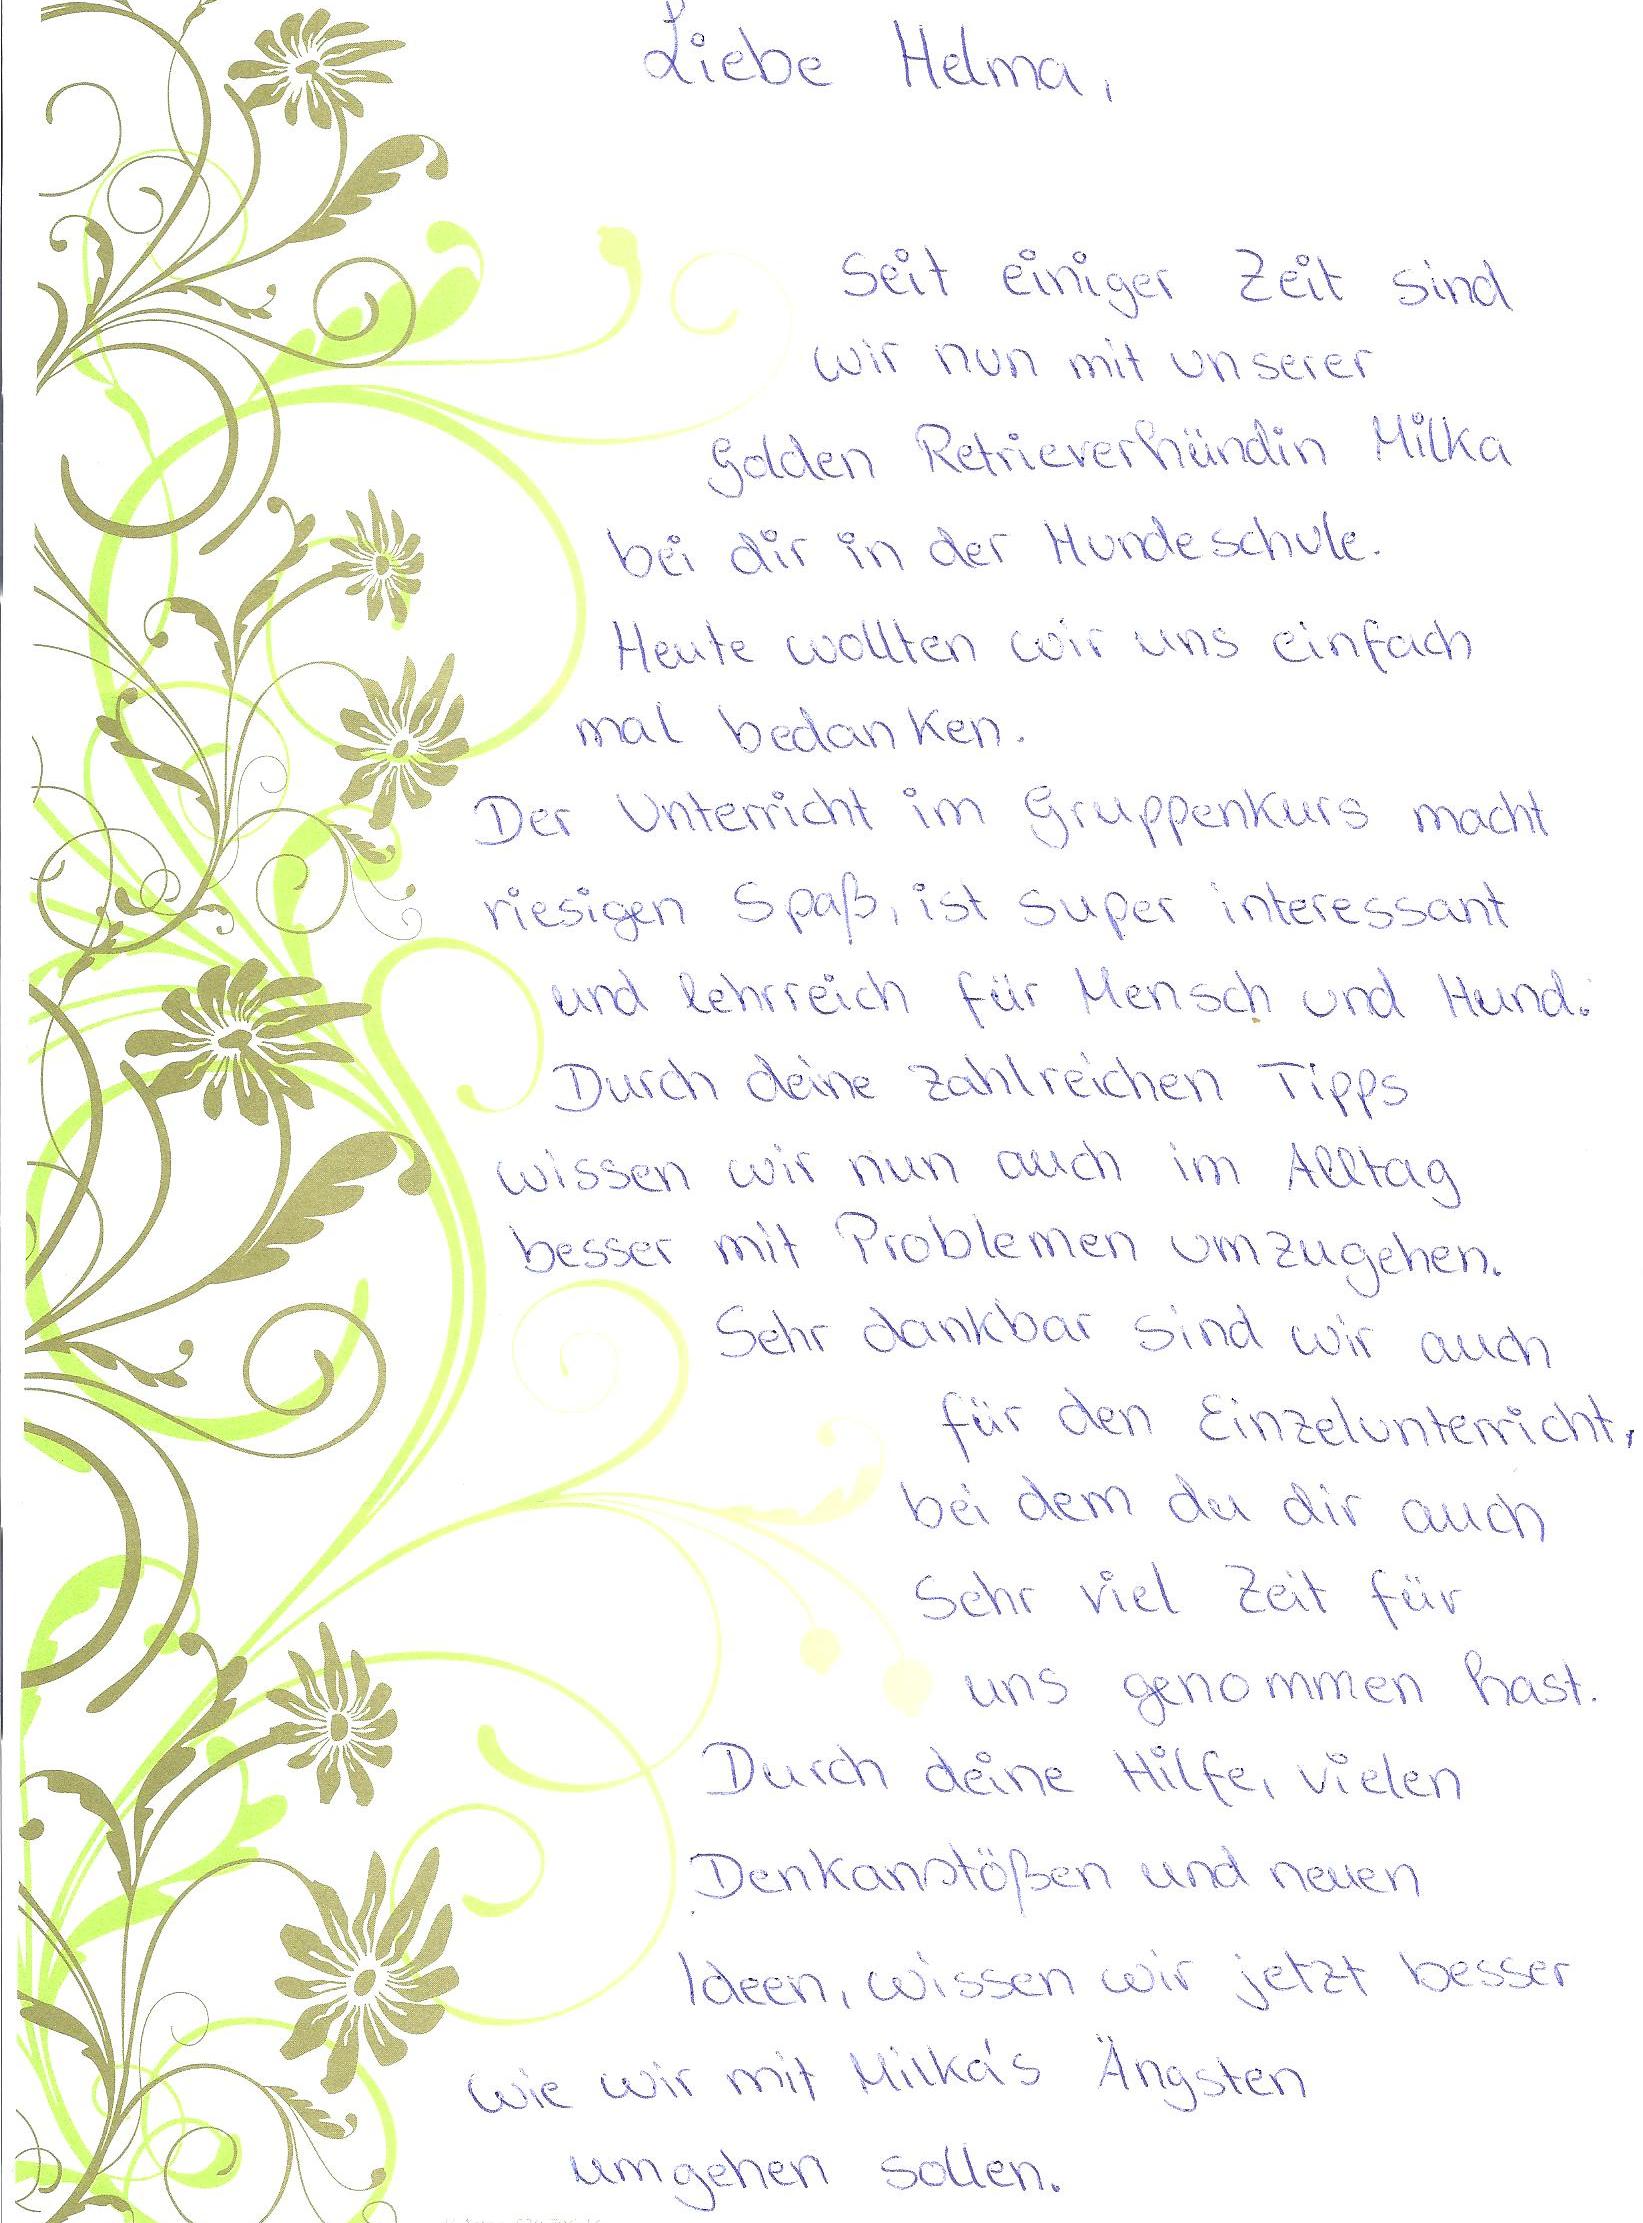 Liebe Helma,
Seit einiger Zeit sind
wir nun mit unserer
Golden Retrieverhündin Milka
bei dir in der Hundeschule.
Heute wollten wir uns einfach
mal bedanken.
Der Unterricht im Gruppenkurs macht
riesigen Spaß, ist super interessant
und lehrreich für Mensch und Hund.
Durch deine zahlreichen Tipps
wissen wir nun auch im Alltag
besser mit Problemen umzugehen.
Sehr dankbar sind wir auch
für den Einzelunterricht,
bei dem du dir auch
Sehr viel Zeit für
uns genommen hast.
Durch deine Hilfe, vielen
Denkanstößen und neuen
Ideen, wissen wir jetzt besser
wie wir mit Milka's Ängsten
umgehen sollen.